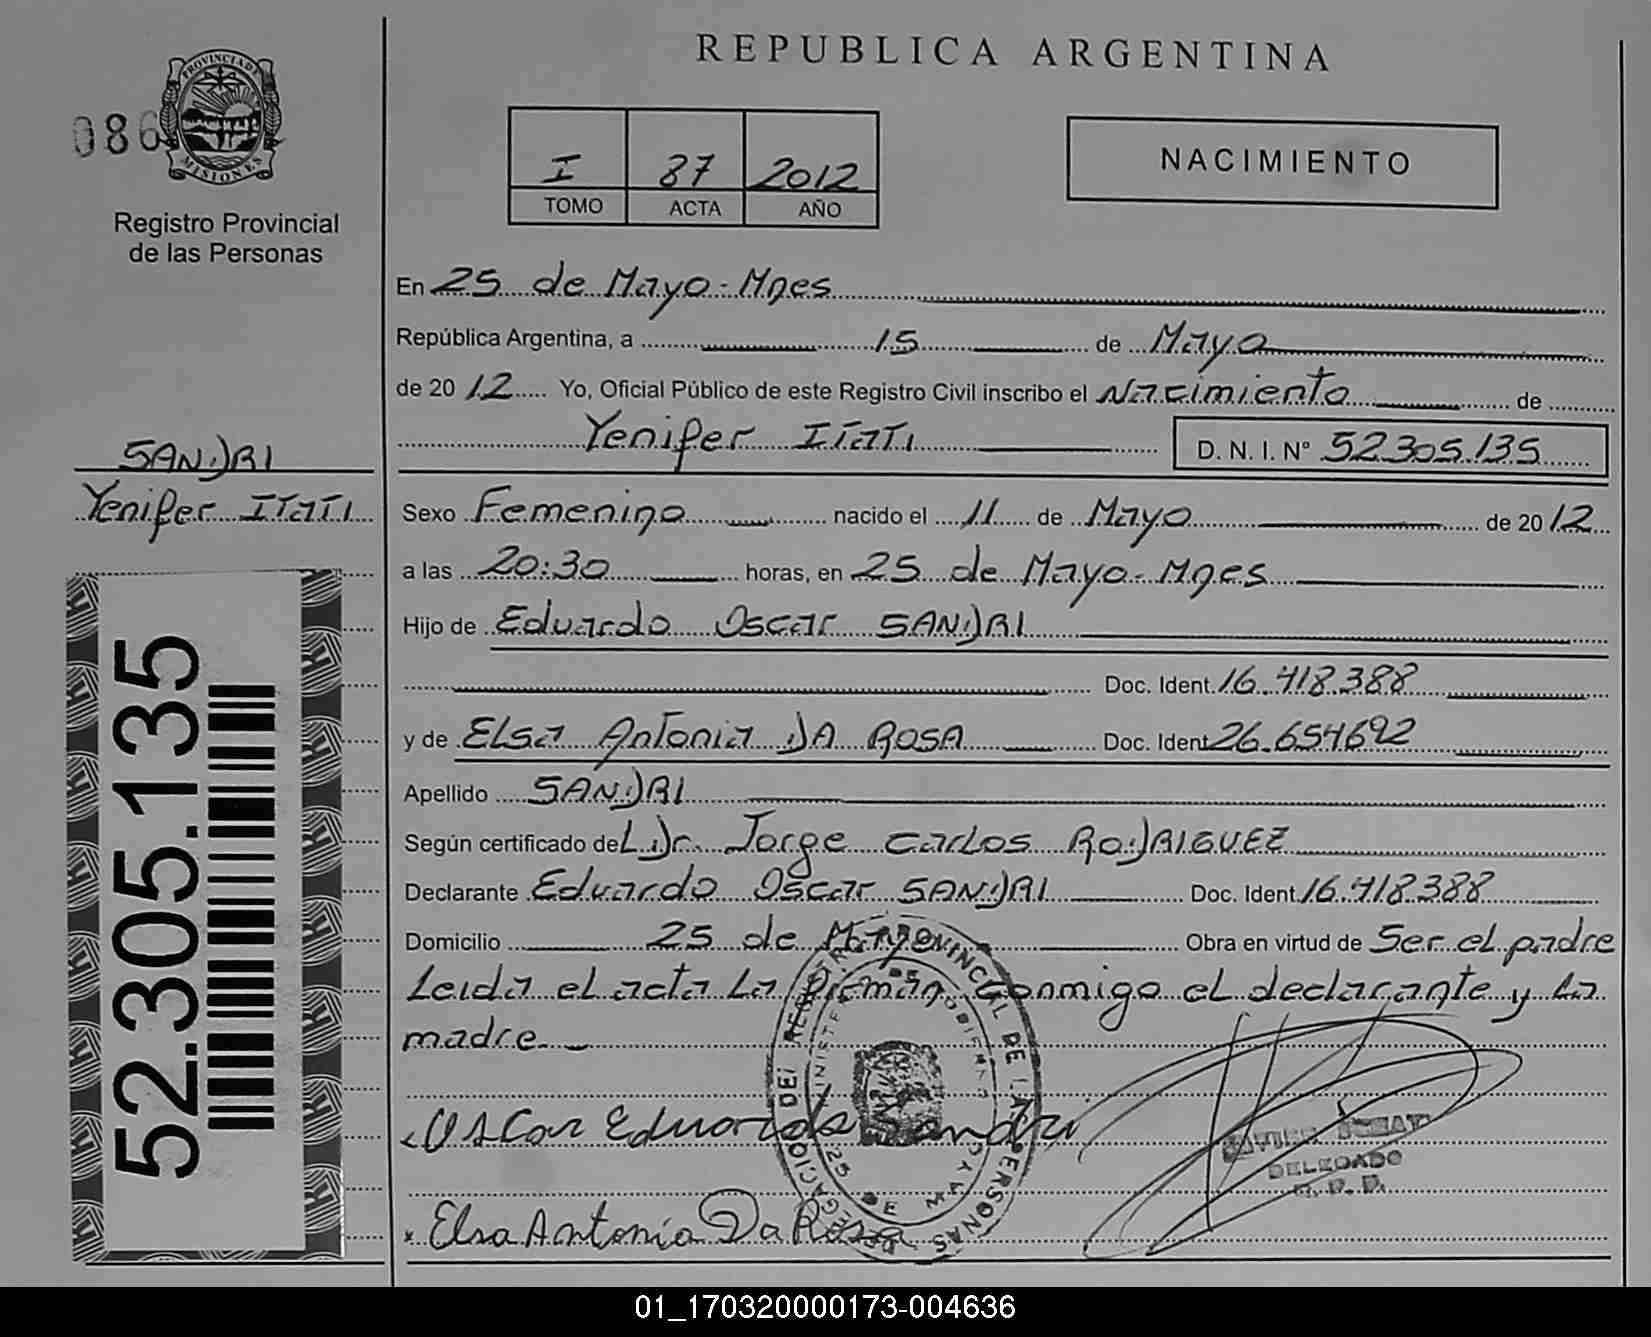 REPUBLICA ARGENTINA
086
PROVINCIA DE
MISIONES
Registro Provincial
de las Personas
I 87 2012
TOMO ACTA AÑO
NACIMIENTO
En 25 de Mayo - Mnes
República Argentina, a 15 de Mayo
de 2012 Yo, Oficial Público de este Registro Civil inscribo el Nacimiento de
Yenifer ITATI D. N. I. Nº 52.305.135
SANDRI
Yenifer ITATI
Sexo Femenino nacido el 11 de Mayo de 2012
a las 20:30 horas, en 25 de Mayo - Mnes
Hijo de Eduardo Oscar SANDRI
Doc. Ident. 16.418.388
y de ELSA Antonia DA ROSA Doc. Ident 26.654692
Apellido SANDRI
Según certificado del Dr. Jorge Carlos RODRIGUEZ
Declarante Eduardo Oscar SANDRI Doc. Ident. 16.418.388
Domicilio 25 de Mayo Obra en virtud de Ser el padre
Leida el acta La firman conmigo el declarante y La
madre.
52.305.135
Oscar Eduardo Sandri
DELEGADO
R. P. P.
DELEGACION DEL REGISTRO PROVINCIAL DE LAS PERSONAS
MINISTERIO DE GOBIERNO
25 DE MAYO
Elsa Antonia Da Rosa
01_170320000173-004636